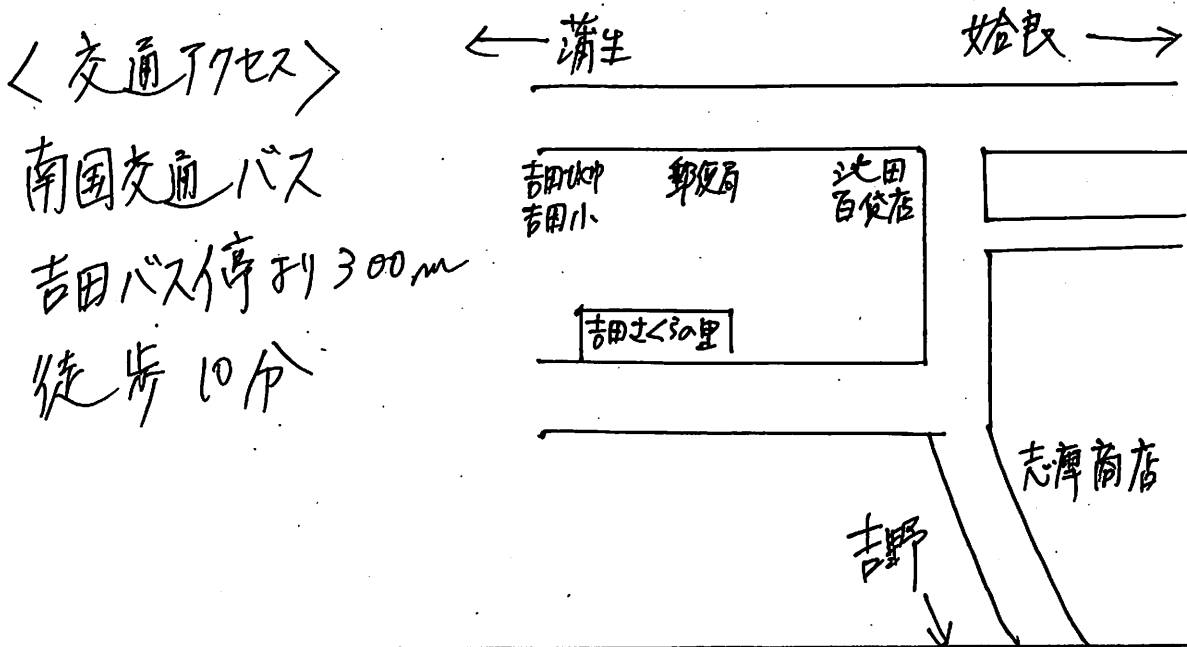 <交通アクセス>
南国交通バス
吉田バス停より300m
徒歩10分
←蒲生
姶良→
吉田幼
吉田小
郵便局
池田
百貨店
吉田さくらの里
志摩商店
吉野